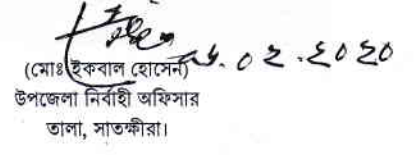 ০২.২০২০
(মোঃ ইকবাল হোসেন)
উপজেলা নির্বাহী অফিসার
তালা, সাতক্ষীরা।